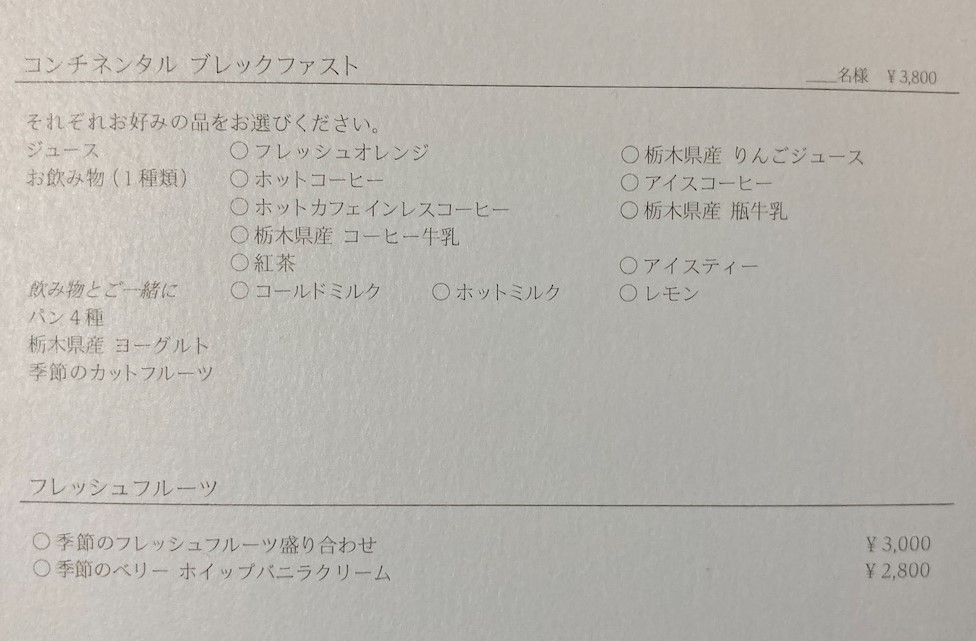 コンチネンタル ブレックファスト ___名様 ¥3,800
それぞれお好みの品をお選びください。
ジュース ○フレッシュオレンジ ○栃木県産 りんごジュース
お飲み物（1種類） ○ホットコーヒー ○アイスコーヒー
○ホットカフェインレスコーヒー ○栃木県産 瓶牛乳
○栃木県産 コーヒー牛乳
○紅茶 ○アイスティー
飲み物とご一緒に ○コールドミルク ○ホットミルク ○レモン
パン4種
栃木県産 ヨーグルト
季節のカットフルーツ
フレッシュフルーツ
○季節のフレッシュフルーツ盛り合わせ ¥3,000
○季節のベリー ホイップバニラクリーム ¥2,800